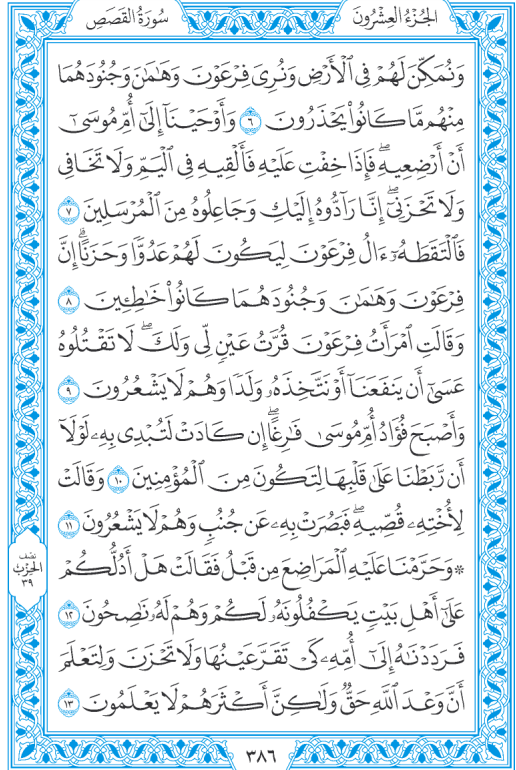 الجُزْءُ العِشْرُونَ
سُورَةُ القَصَصِ
وَنُمَكِّنَ لَهُمْ فِي ٱلْأَرْضِ وَنُرِيَ فِرْعَوْنَ وَهَٰمَٰنَ وَجُنُودَهُمَا
مِنْهُم مَّا كَانُوا۟ يَحْذَرُونَ ٦ وَأَوْحَيْنَآ إِلَىٰٓ أُمِّ مُوسَىٰٓ
أَنْ أَرْضِعِيهِ ۖ فَإِذَا خِفْتِ عَلَيْهِ فَأَلْقِيهِ فِي ٱلْيَمِّ وَلَا تَخَافِي
وَلَا تَحْزَنِيٓ ۖ إِنَّا رَآدُّوهُ إِلَيْكِ وَجَاعِلُوهُ مِنَ ٱلْمُرْسَلِينَ ٧
فَٱلْتَقَطَهُۥٓ ءَالُ فِرْعَوْنَ لِيَكُونَ لَهُمْ عَدُوًّا وَحَزَنًا ۗ إِنَّ
فِرْعَوْنَ وَهَٰمَٰنَ وَجُنُودَهُمَا كَانُوا۟ خَٰطِـِٔينَ ٨
وَقَالَتِ ٱمْرَأَتُ فِرْعَوْنَ قُرَّتُ عَيْنٍ لِّي وَلَكَ ۖ لَا تَقْتُلُوهُ
عَسَىٰٓ أَن يَنفَعَنَآ أَوْ نَتَّخِذَهُۥ وَلَدًا وَهُمْ لَا يَشْعُرُونَ ٩
وَأَصْبَحَ فُؤَادُ أُمِّ مُوسَىٰ فَٰرِغًا ۖ إِن كَادَتْ لَتُبْدِي بِهِۦ لَوْلَآ
أَن رَّبَطْنَا عَلَىٰ قَلْبِهَا لِتَكُونَ مِنَ ٱلْمُؤْمِنِينَ ١٠ وَقَالَتْ
لِأُخْتِهِۦ قُصِّيهِ ۖ فَبَصُرَتْ بِهِۦ عَن جُنُبٍ وَهُمْ لَا يَشْعُرُونَ ١١
۞ وَحَرَّمْنَا عَلَيْهِ ٱلْمَرَاضِعَ مِن قَبْلُ فَقَالَتْ هَلْ أَدُلُّكُمْ
عَلَىٰٓ أَهْلِ بَيْتٍ يَكْفُلُونَهُۥ لَكُمْ وَهُمْ لَهُۥ نَٰصِحُونَ ١٢
فَرَدَدْنَٰهُ إِلَىٰٓ أُمِّهِۦ كَيْ تَقَرَّ عَيْنُهَا وَلَا تَحْزَنَ وَلِتَعْلَمَ
أَنَّ وَعْدَ ٱللَّهِ حَقٌّ وَلَٰكِنَّ أَكْثَرَهُمْ لَا يَعْلَمُونَ ١٣
نصف
الحزب
٣٩
٣٨٦